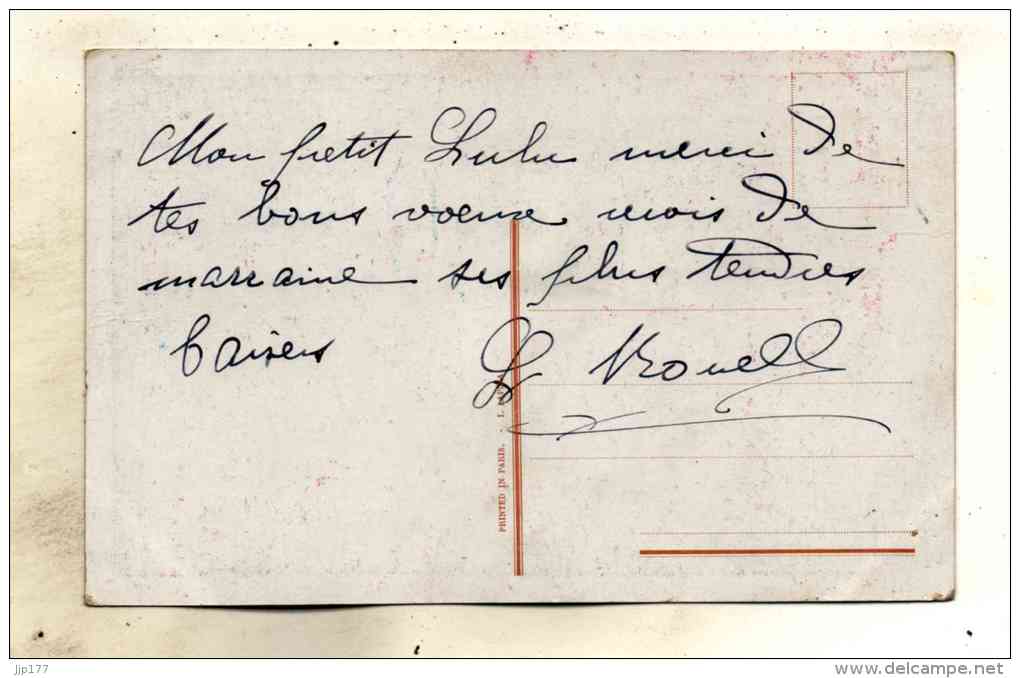 Mon petit Lulu merci de
tes bons voeux reçois de
marraine ses plus tendres
baisers
PRINTED IN PARIS.
jjp177
www.delcampe.net